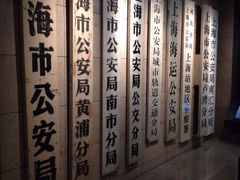 海市公安局
海市公安局黄浦分局
海市公安局南市分局
海市公安局公交分局
海市公安局城市轨道交通分局
上海海运公安局
上海站地区
上海市公安局卢湾分局
上海市公安局